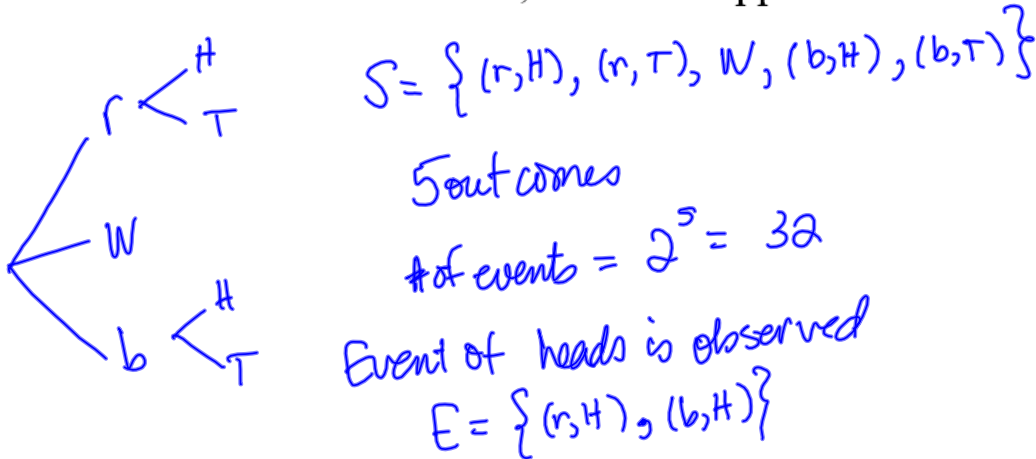 S = { (r,H), (r,T), W, (b,H), (b,T) }
r
H
T
W
b
H
T
5 outcomes
# of events = 2⁵ = 32
Event of heads is observed
E = { (r,H), (b,H) }